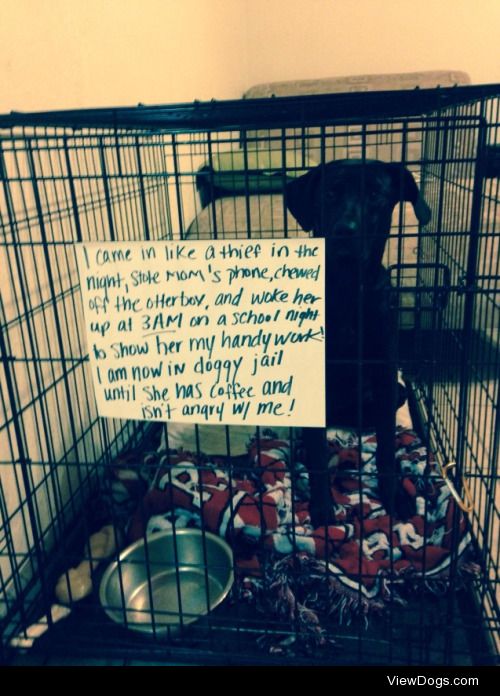 I came in like a thief in the
night, stole mom's phone, chewed
off the otterbox, and woke her
up at 3AM on a school night
to show her my handy work!
I am now in doggy jail
until she has coffee and
isn't angry w/ me!
ViewDogs.com